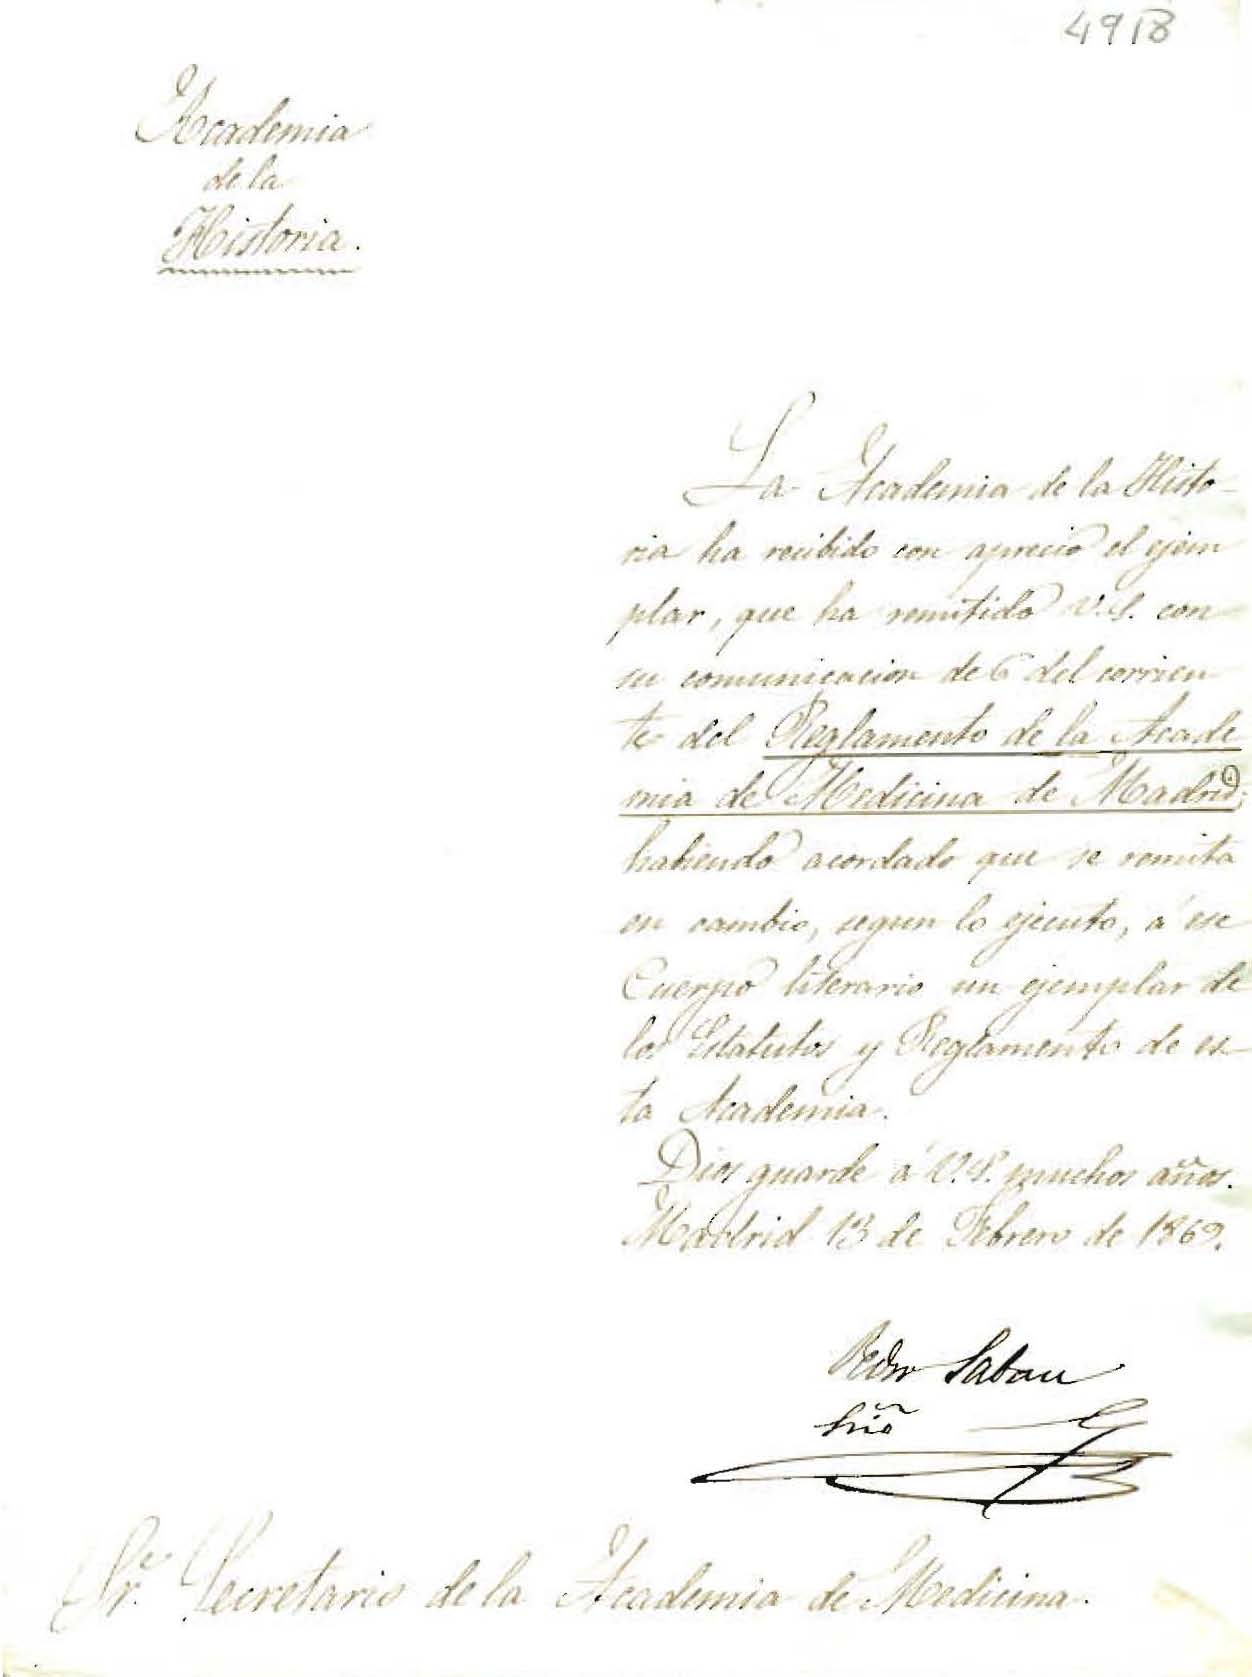 4918
Academia
de la
Historia.
La Academia de la Histo-
ria ha recibido con aprecio el ejem
plar, que ha remitido V.S. con
su comunicacion de 6 del corrien
te del Reglamento de la Acade
mia de Medicina de Madrid;
habiendo acordado que se remita
en cambio, segun lo ejecuto, á ese
Cuerpo literario un ejemplar de
los Estatutos y Reglamento de es-
ta Academia.
Dios guarde á V.S. muchos años.
Madrid 13 de Febrero de 1869.
Pedro Sabau
Srio
Sr. Secretario de la Academia de Medicina.